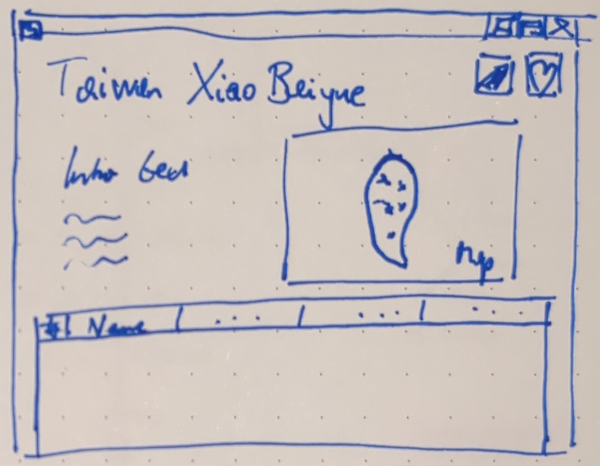 Taiwan Xiao Baiyue
Intro text
Map
# Name